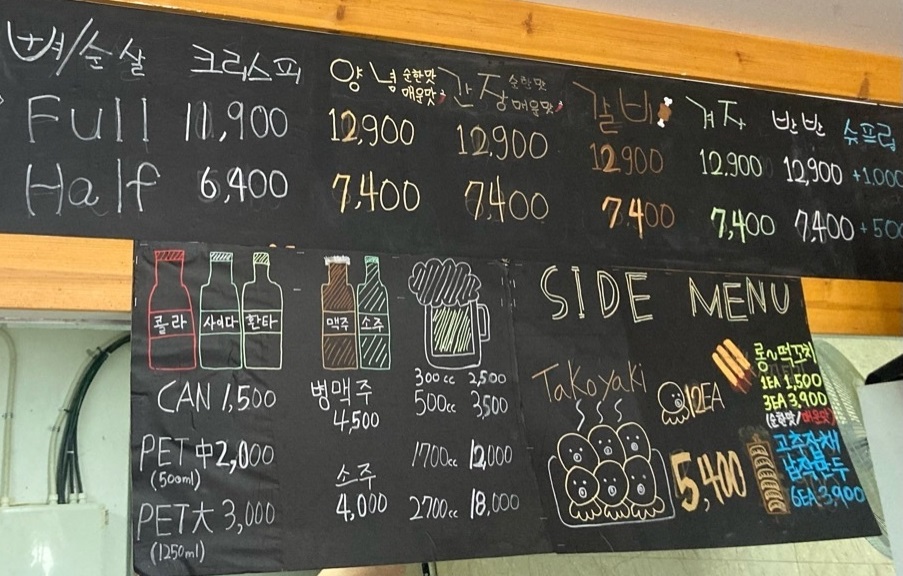 뼈/순살 크리스피 양념 순한맛 매운맛 간장 순한맛 매운맛 갈비 겨자 반반 슈프림
Full 11,900 12,900 12,900 12,900 12,900 12,900 +1,000
Half 6,400 7,400 7,400 7,400 7,400 7,400 +500
콜라 사이다 환타 맥주 소주
CAN 1,500
PET 中 2,000
(500ml)
PET 大 3,000
(1250ml)
병맥주
4,500
소주
4,000
300cc 2,500
500cc 3,500
1700cc 12,000
2700cc 18,000
SIDE MENU
Takoyaki 12EA
5,400
롱~떡꼬치
1EA 1,500
3EA 3,900
(순한맛/매운맛)
고추잡채
납작만두
6EA 3,900